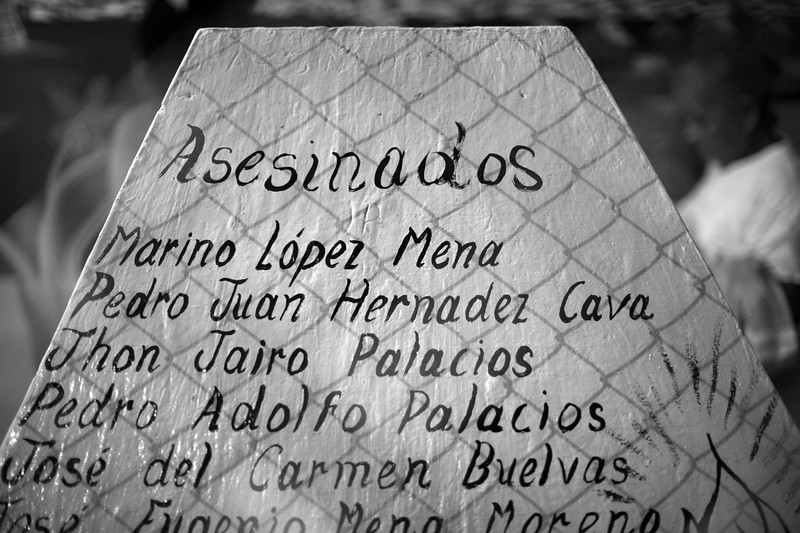 Asesinados
Marino López Mena
Pedro Juan Hernadez Cava
Jhon Jairo Palacios
Pedro Adolfo Palacios
José del Carmen Buelvas
José Eugenio Mena Moreno